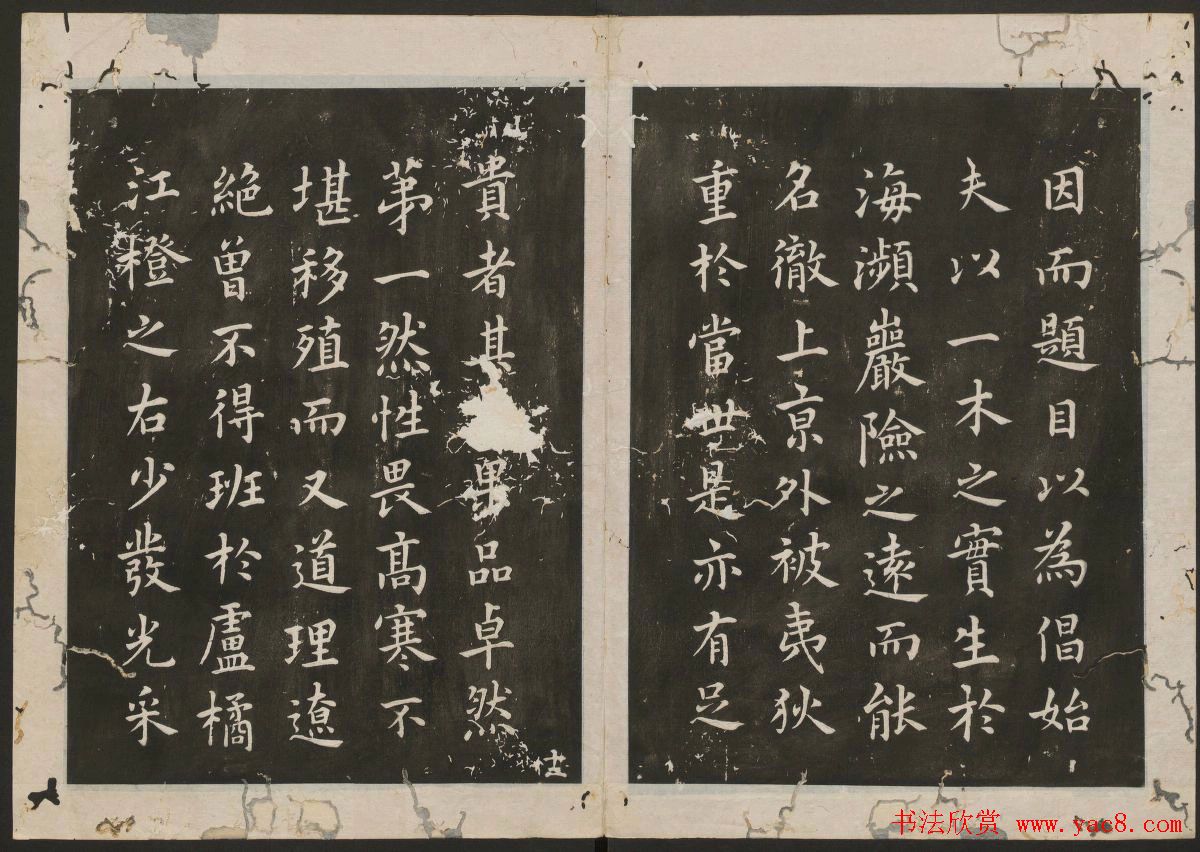 因而題目以為倡始
夫以一木之實生於
海瀕巖險之遠而能
名徹上京外被夷狄
重於當世是亦有足
貴者其果品卓然
第一然性畏髙寒不
堪移殖而又道理遼
絶曾不得班於盧橘
江橙之右少發光采
书法欣赏 www.yac8.com